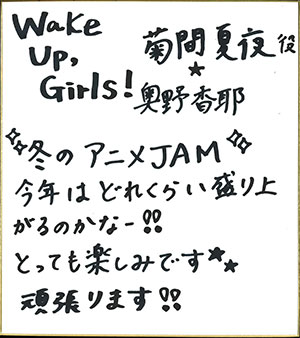 Wake
Up,
Girls!
菊間夏夜役
★
奥野香耶
冬のアニメJAM
今年はどれくらい盛り上
がるのかなー!!
とっても楽しみです★★
頑張ります!!